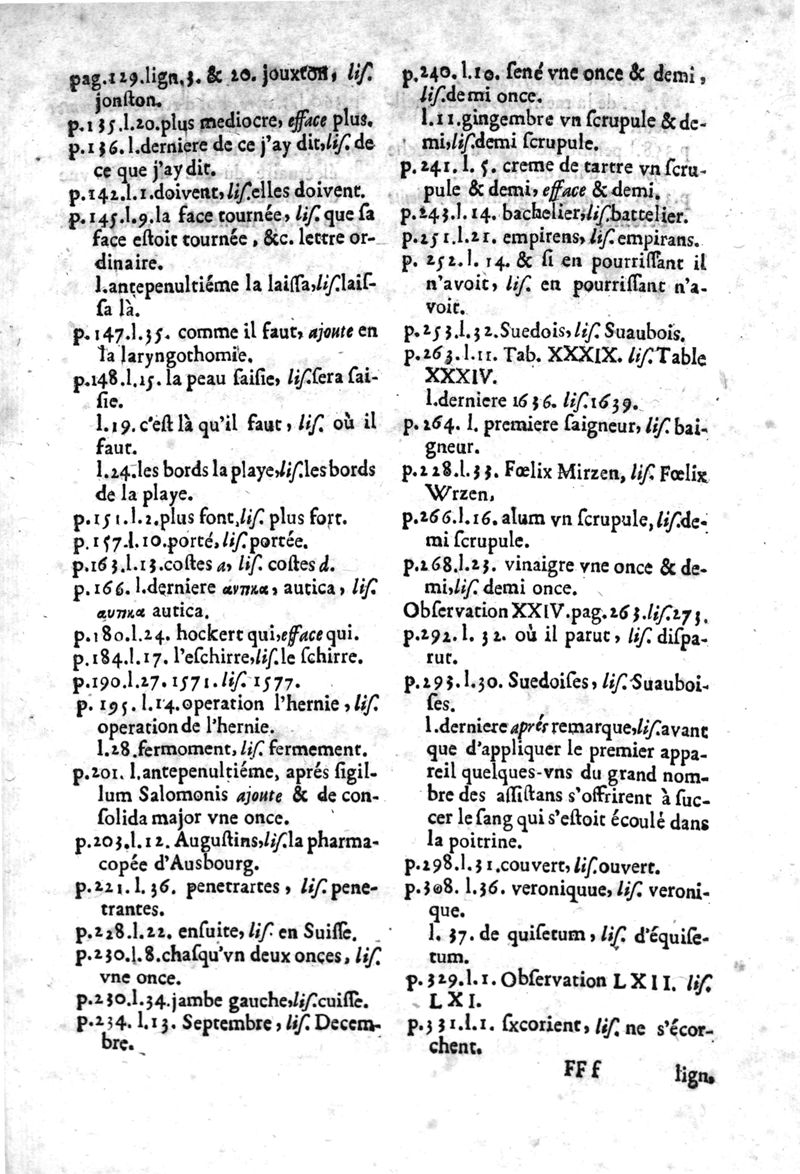 pag.129.lign.3. & 20. jouxton, liſ.
jonſton.
p.135.l.20.plus mediocre, efface plus.
p.136.l.derniere de ce j'ay dit,liſ. de
ce que j'ay dit.
p.142.l.1.doivent,liſ.elles doivent.
p.145.l.9.la face tournée, liſ. que ſa
face eſtoit tournée, &c. lettre or-
dinaire.
l.antepenultiéme la laiſſa,liſ.laiſ-
ſa là.
p.147.l.35. comme il faut, ajoute en
la laryngothomie.
p.148.l.15. la peau ſaiſie, liſ.ſera ſai-
ſie.
l.19. c'eſt là qu'il faut, liſ. où il
faut.
l.24.les bords la playe,liſ.les bords
de la playe.
p.151.l.2.plus font,liſ. plus fort.
p.157.l.10.porté,liſ.portée.
p.163.l.13.coſtes a, liſ. coſtes d.
p.166. l.derniere αυπκα, autica, liſ.
αυπκα autica.
p.180.l.24. hockert qui,efface qui.
p.184.l.17. l'eſchirre,liſ.le ſchirre.
p.190.l.27. 1571. liſ. 1577.
p. 195. l.14.operation l'hernie, liſ.
operation de l'hernie.
l.28.fermoment, liſ. fermement.
p.201. l.antepenultiéme, aprés ſigil-
lum Salomonis ajoute & de con-
ſolida major vne once.
p.203.l.12. Auguſtins,liſ.la pharma-
copée d'Ausbourg.
p.221. l. 36. penetrartes, liſ. pene-
trantes.
p.228.l.22. enſuite, liſ. en Suiſſe.
p.230.l.8.chaſqu'vn deux onces, liſ.
vne once.
p.230.l.34.jambe gauche,liſ.cuiſſe.
p.234. l.13. Septembre, liſ. Decem-
bre.
p.240.l.10. ſené vne once & demi,
liſ.demi once.
l.11.gingembre vn ſcrupule & de-
mi,liſ.demi ſcrupule.
p.241. l. 5. creme de tartre vn ſcru-
pule & demi, efface & demi.
p.243.l.14. bachelier,liſ.battelier.
p.251.l.21. empirens, liſ. empirans.
p. 252. l. 14. & ſi en pourriſſant il
n'avoit, liſ. en pourriſſant n'a-
voit.
p.253.l.32.Suedois, liſ. Suaubois.
p.263.l.11. Tab. XXXIX. liſ.Table
XXXIV.
l.derniere 1636. liſ.1639.
p.264. l. premiere ſaigneur, liſ. bai-
gneur.
p.228.l.33. Fœlix Mirzen, liſ. Fœlix
Wrzen,
p.266.l.16. alum vn ſcrupule, liſ.de-
mi ſcrupule.
p.268.l.23. vinaigre vne once & de-
mi,liſ. demi once.
Obſervation XXIV. pag. 263. liſ.273.
p.292. l. 32. où il parut, liſ. diſpa-
rut.
p.293.l.30. Suedoiſes, liſ. Suauboi-
ſes.
l.derniere aprés remarque,liſ.avant
que d'appliquer le premier appa-
reil quelques-vns du grand nom-
bre des aſſiſtans s'offrirent à ſuc-
cer le ſang qui s'eſtoit écoulé dans
la poitrine.
p.298.l.31.couvert, liſ.ouvert.
p.308. l.36. veroniquue, liſ. veroni-
que.
l. 37. de quiſetum, liſ. d'équiſe-
tum.
p.329.l.1. Obſervation LXII. liſ.
LXI.
p.331.l.1. ſxcorient, liſ. ne s'écor-
chent.
FFf
lign.